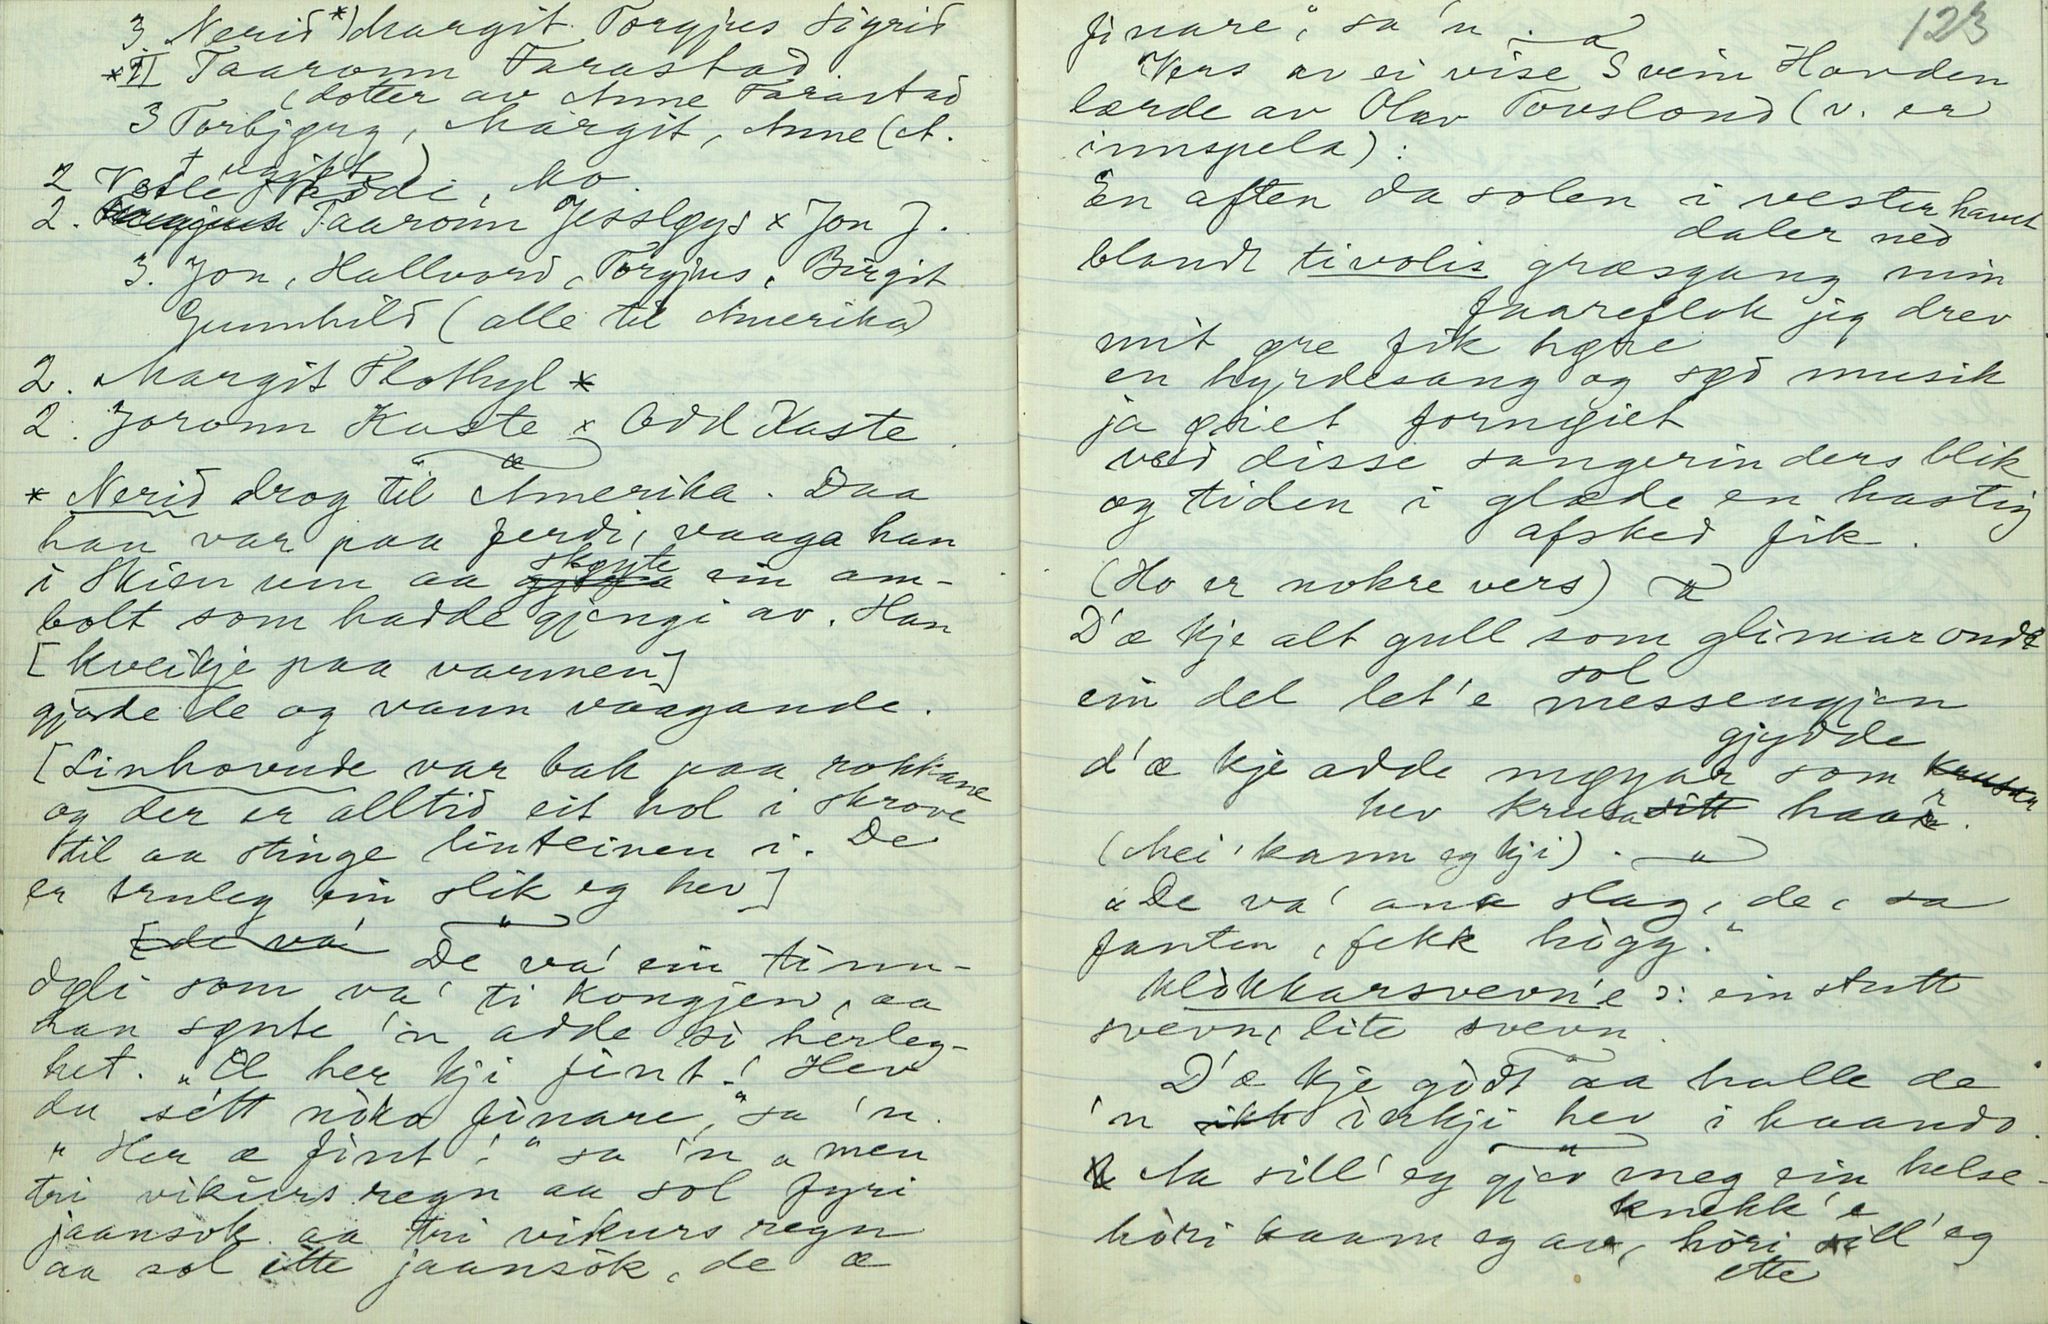 3 Nerid *) Margit Torgjus Sigrid
*II Taaronn Farastad
(dotter av Anne Farastad
3 Torbjørg, Margit, Anne (A.
ugift)
2 Vetle Naddi, Mo
2. Taaronn Jessløys x Jon J.
3. Jon, Hallvord, Torgjus, Birgit
Gunnhild (alle til Amerika)
2. Margit Flothyl *
2. Joronn Kaste x Odd Kaste
* Nerid drog til Amerika. Daa
han var paa ferdi, vaaga han
i Skien um aa skøyte ein am-
bolt som hadde gjengi av. Han
[kveikje paa varmen]
gjorde de og vann vaagande.
[Linhovude var bak paa rokkane
og der er alltid eit hol i skrove
til aa stinge linteinen i. De
er truleg ein slik eg hev]
[de va' De va' ein tinn-
døli som va' ti kongjen, aa
han synte 'n adde si herleg-
het. "Æ her kji fint! Hev
du sétt noko finare," sa 'n.
"Her æ fint!" sa 'n "men
tri vikurs regn aa sol fyri
jaansok aa tri vikurs regn
aa sol ette jaansòk, de æ
123
finare," sa 'n.
Vers av ei vise Svein Hovden
lærde av Olav Tovslond (v. er
innspela):
En aften da solen i vesterhavet
daler ned
blandt tivolis græsgang min
faareflok jeg drev
mit øre fik høre
en hyrdesang og sød musik
ja øiet fornøiet
ved disse sangerinders blik
og tiden i glæde en hastig
afsked fik.
(Ho er nokre vers)
D'æ kje alt gull som glimar ondt
ein del let'e sol messengjen
d'æ kje adde møyar som gjydde
hev krusa haar.
(Mei' kann eg kji).
"De va' ana slag, de, sa
fanten, fekk hògg."
klòkkarsvevn'e ɔ: ein stutt
svevn, lite svevn.
D'æ kje gòdt aa halle de
'n inkji hev i haando.
Aa sill' eg gjev meg ein helse-
knekk'e
hòri kaam eg av, hòri sill' eg
ette